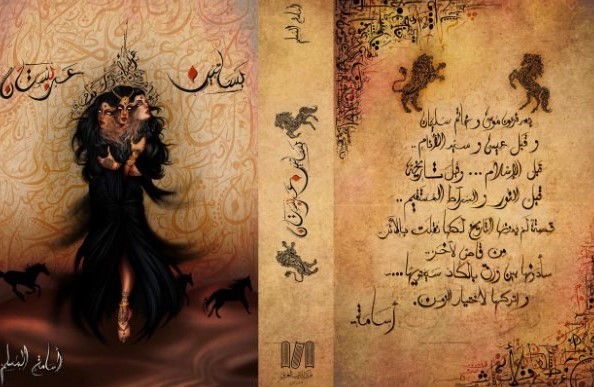 بساتين عربستان
أسامة المسلم
أسامة المسلم
بساتين عربستان
بعد قرون موسى و خاتم سليمان
و قبل عيسى و سيد الأنام..
قبل الإسلام... وقبل تاريخنا
قبل النور و السراط المستقيم..
قصة لم التاريخ لكنها نقلت بالأثر
من قاص لآخر.
سأدونها بين ورق بالكاد سيحويها...
وأتركها لاختبار الزمن.
أسامة